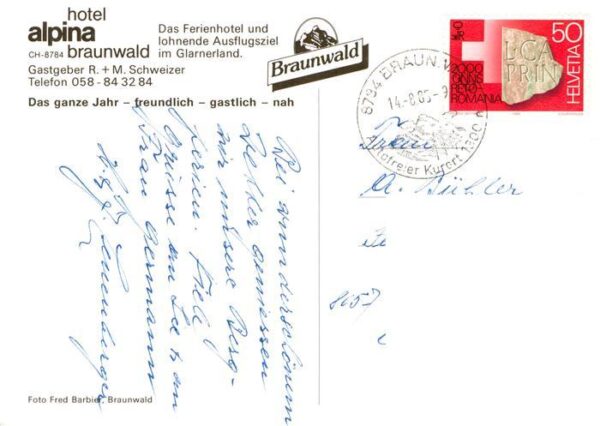 hotel
alpina
CH-8784 braunwald
Das Ferienhotel und
lohnende Ausflugsziel
im Glarnerland.
Gastgeber R. + M. Schweizer
Telefon 058 - 84 32 84
Das ganze Jahr – freundlich – gastlich – nah
Braunwald
8784 BRAUNW
14.-8.85-9
Autofreier Kurort 1300
50
HELVETIA
L·CA
PRIN
2000
ONNS
RETO-
ROMANIA
Bei wunderschönem
Wetter geniessen
wir unsere Berg-
ferien. Viele
Grüsse an Sie &
Frau Germann
Frau
A. Bühler
8157
Foto Fred Barbier, Braunwald